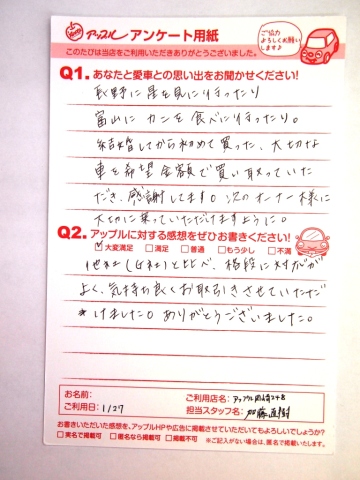 アップル アンケート用紙
ご協力
よろしくお願い
します♪
このたびは当店をご利用いただきありがとうございました。
Q1. あなたと愛車との思い出をお聞かせください!
長野に星を見に行ったり
富山にカニを食べに行ったり。
結婚してから初めて買った、大切な
車を希望金額で買い取っていた
だき、感謝してます。次のオーナー様に
大切に乗っていただけますように。
Q2. アップルに対する感想をぜひお書きください!
☑大変満足 □満足 □普通 □もう少し □不満
他社(G社)と比べ、格段に対応が
よく、気持ち良くお取引きさせていただだ
けました。ありがとうございました。
お名前:
ご利用日: 1/27
ご利用店名: アップル岡崎248
担当スタッフ名: 加藤直樹
お書きいただいた感想を、アップルHPや広告に掲載させていただいてもよろしいでしょうか?
□実名で掲載可 □匿名なら掲載可 □掲載不可 ※ご記入がない場合は、匿名で掲載いたします。